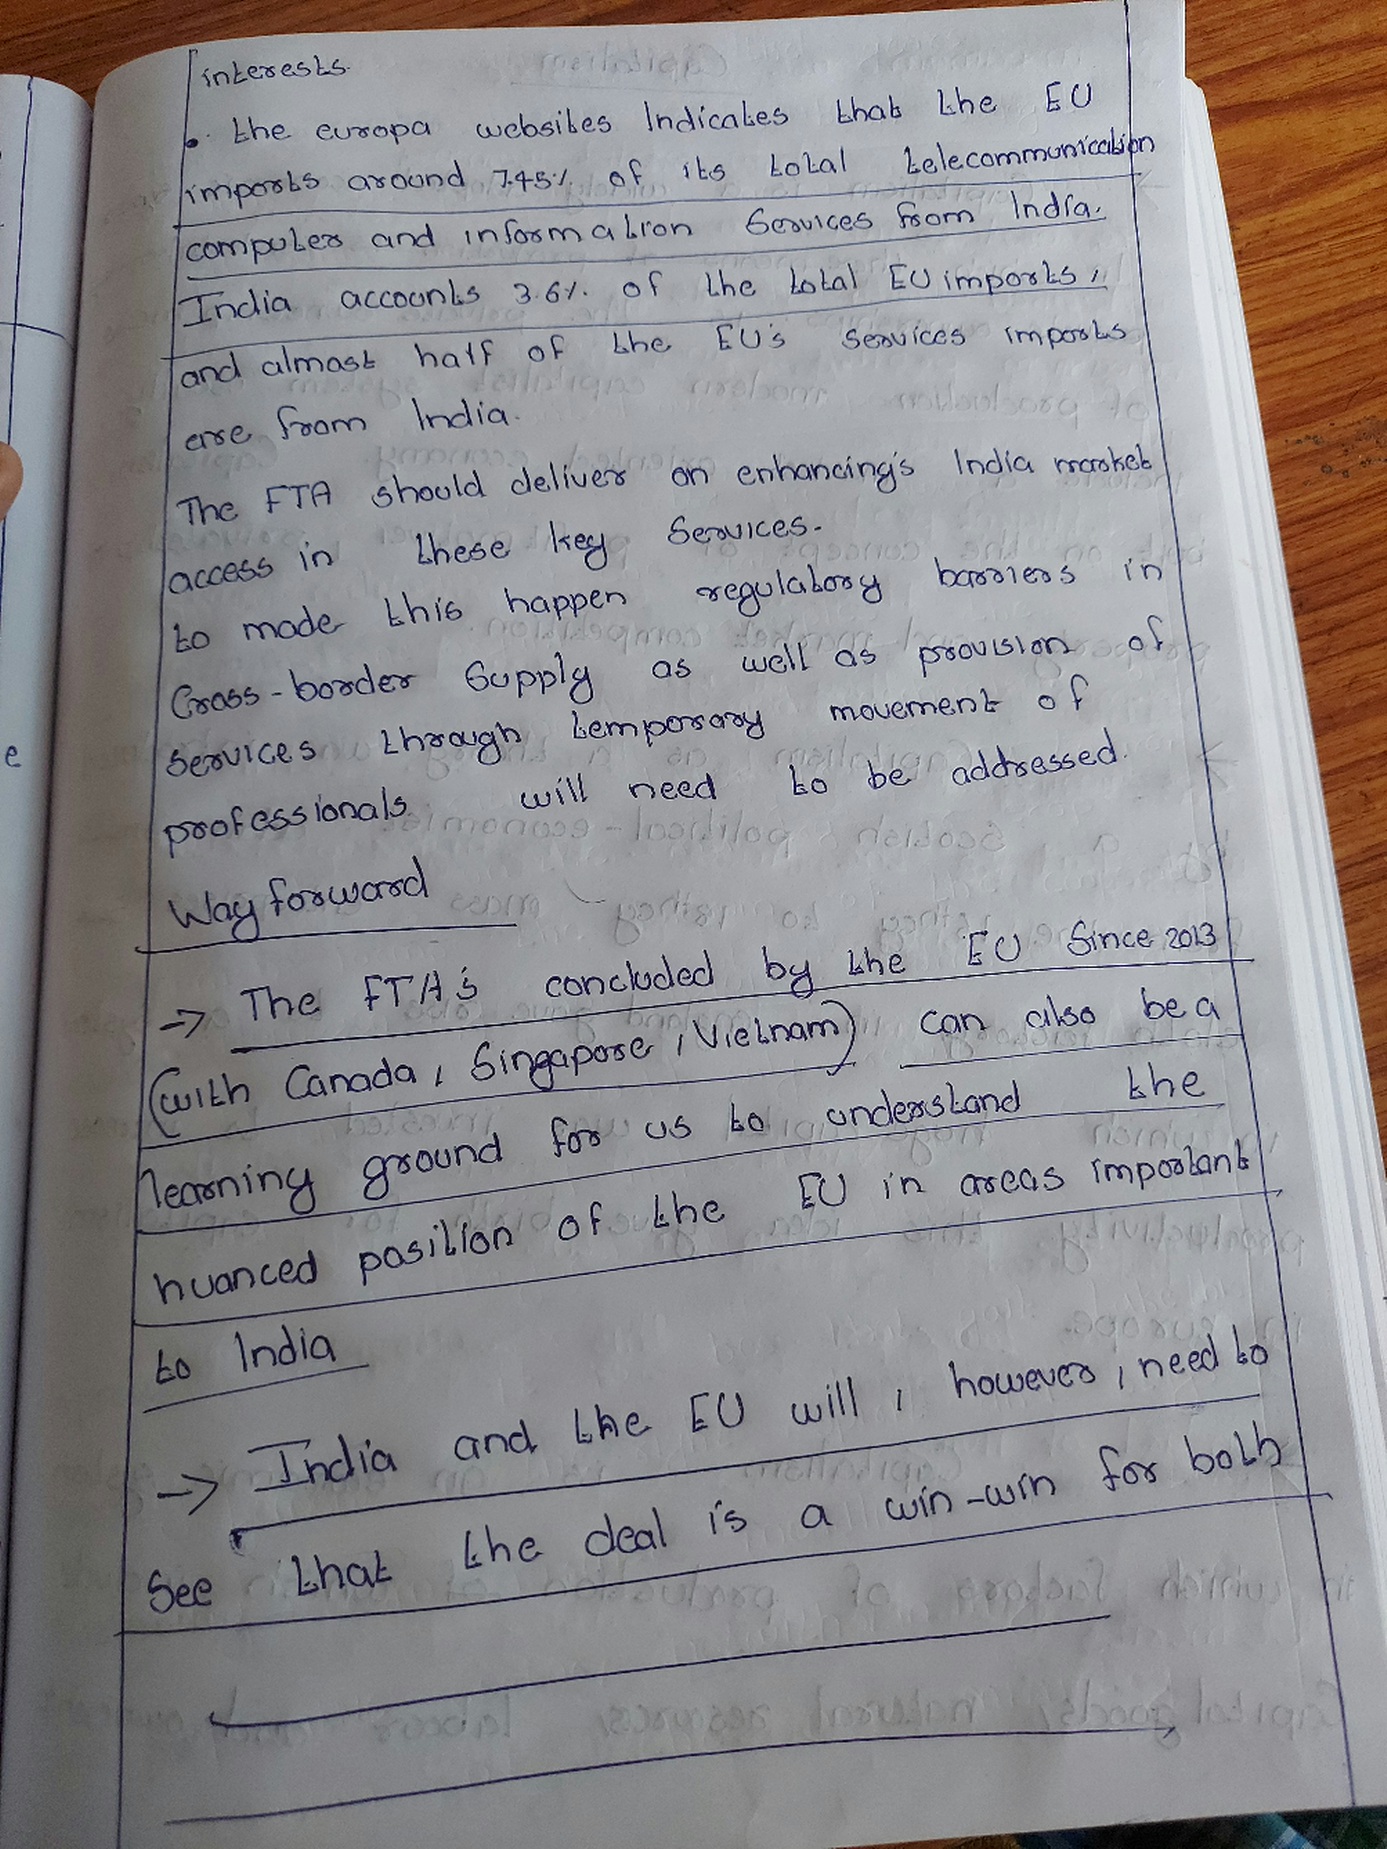 interests.
• the europa websites Indicates that the EU
imports around 7.45% of its total telecommunication
computer and information Services from India.
India accounts 3.6% of the total EU imports,
and almost half of the EU's services imports
are from India.
The FTA should deliver on enhancing's India market
access in these key Services.
to made this happen regulatory barriers in
Cross-border Supply as well as provision of
services through temporary movement of
professionals will need to be addressed.
Way forward
→ The FTA's concluded by the EU Since 2013
(with Canada, Singapore, Vietnam) can also be a
learning ground for us to understand the
nuanced position of the EU in areas important
to India
→ India and the EU will, however, need to
See that the deal is a win-win for both
e